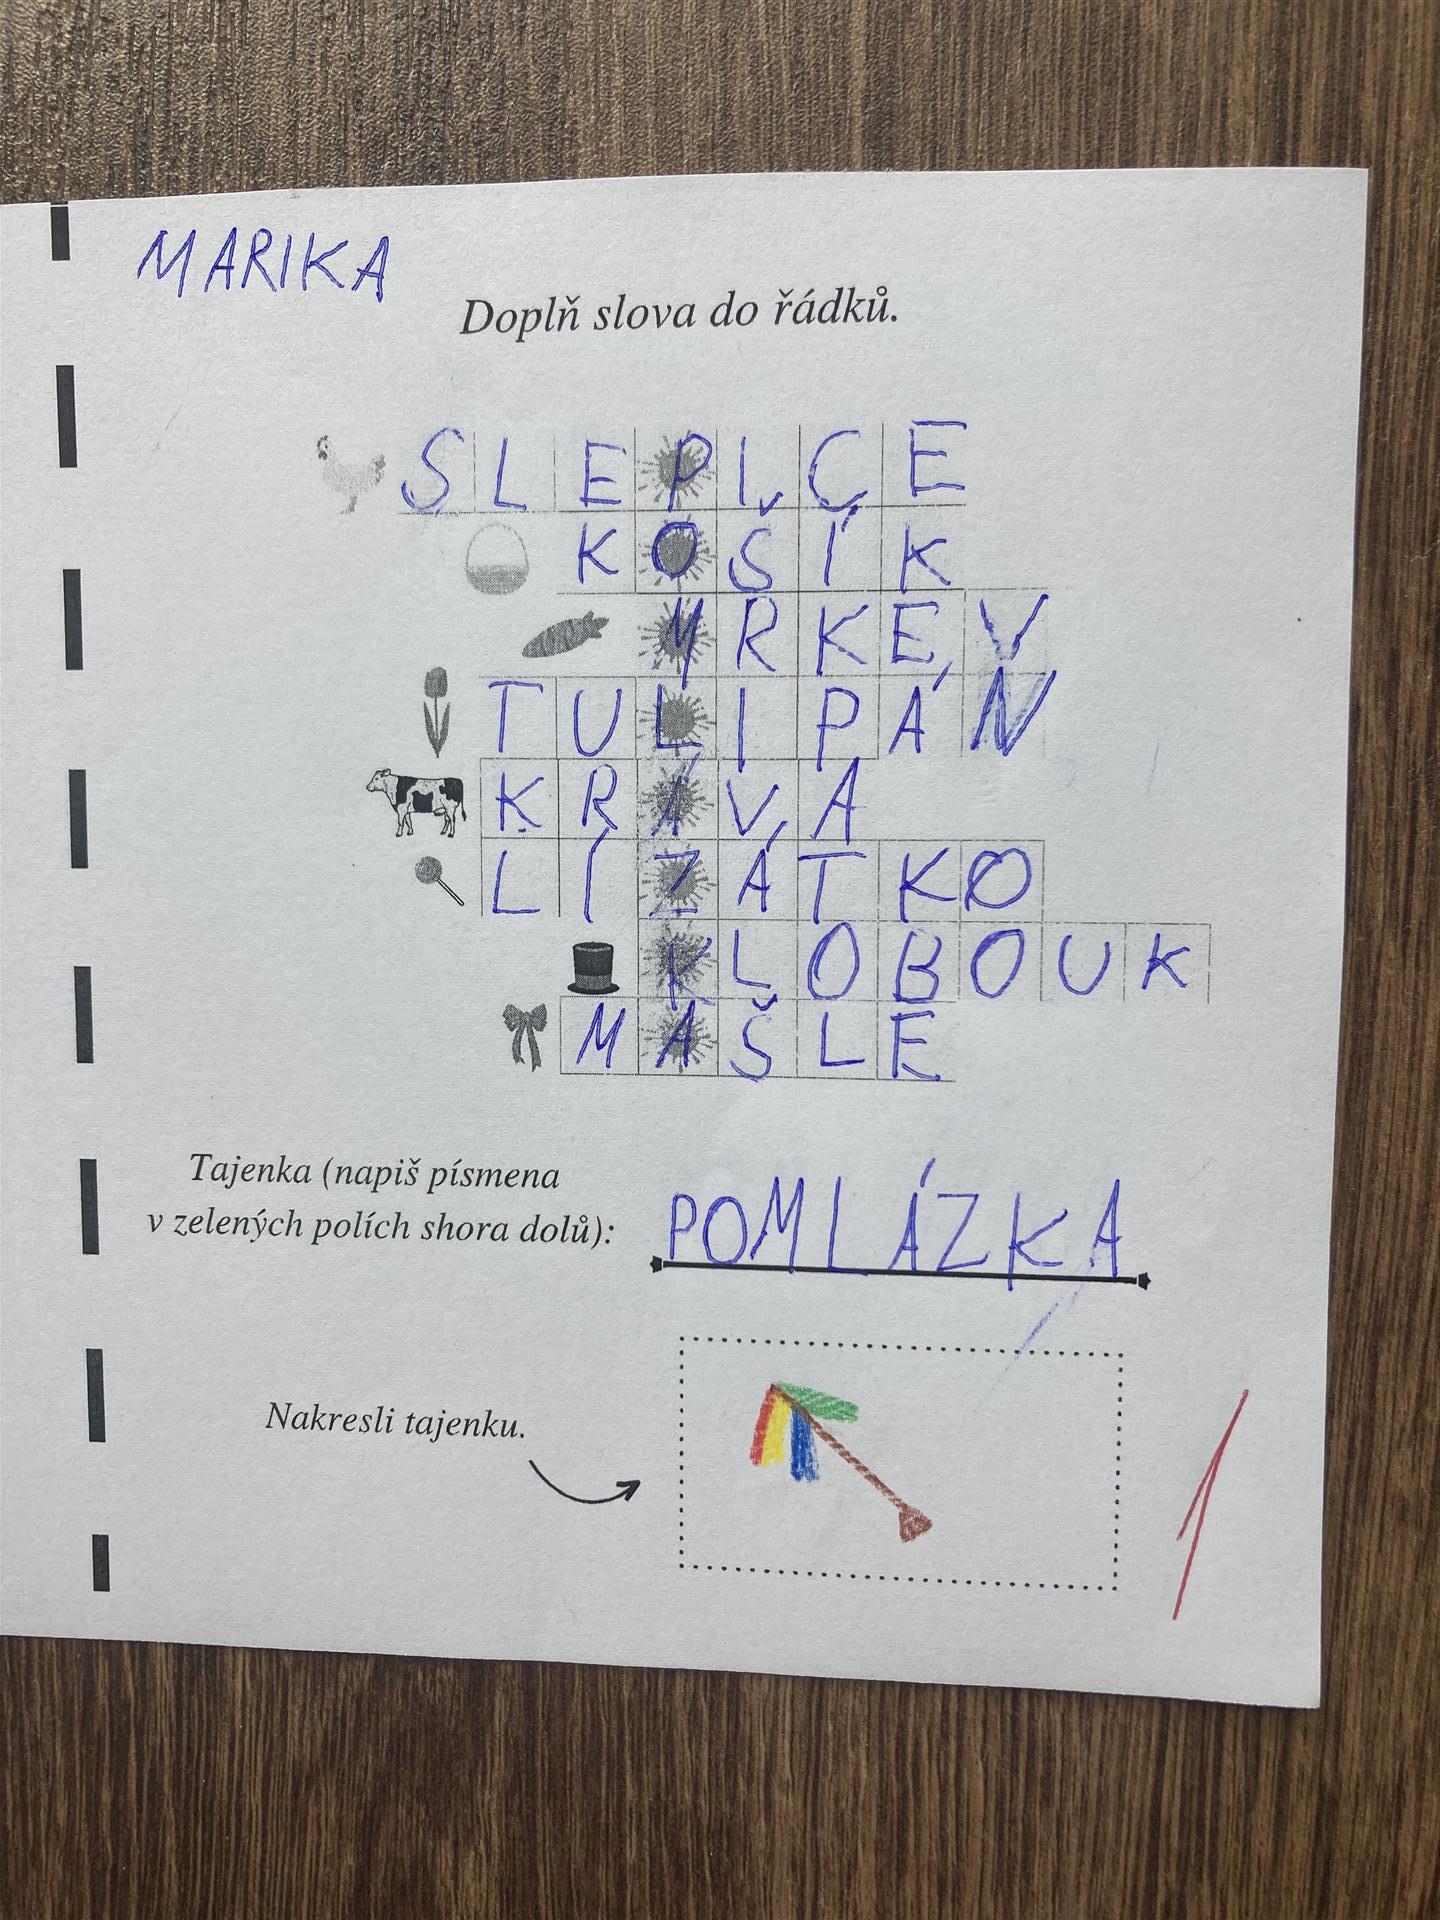 MARIKA
Doplň slova do řádků.
SLEPICE
KOŠÍK
MRKEV
TULIPÁN
KRÁVA
LÍZÁTKO
KLOBOUK
MAŠLE
Tajenka (napiš písmena
v zelených polích shora dolů):
POMLÁZKA
Nakresli tajenku.
1